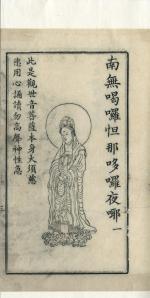 南無喝囉怛那哆囉夜㖿一
此是觀世音菩薩本身大須慈
悲用心誦讀勿高聲神性急